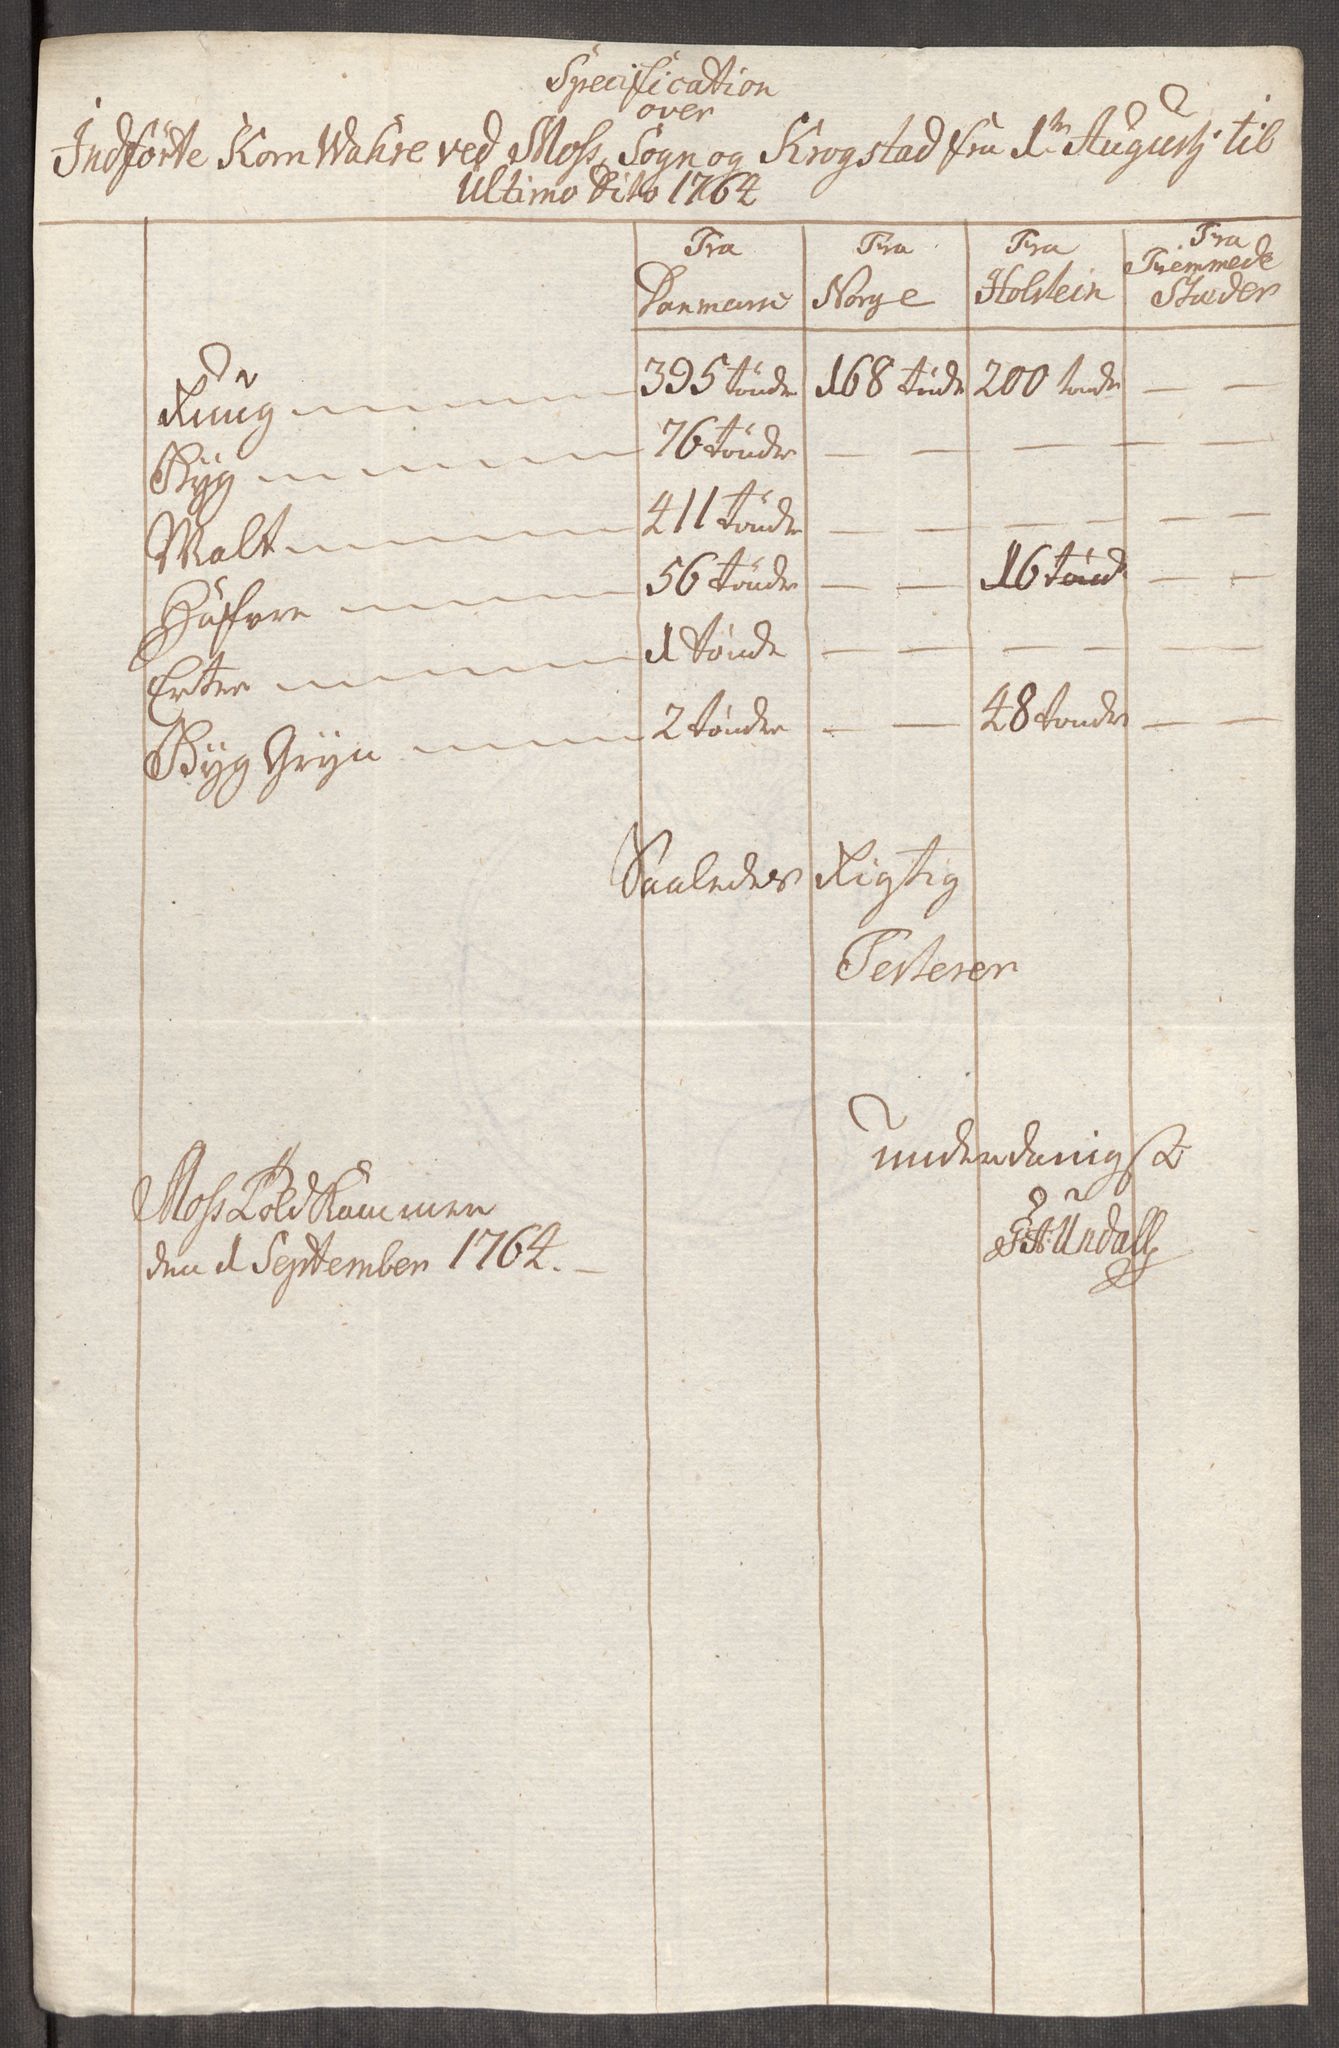 Specification
over
Indförte Korn Wahre ved Moss, Sogn og Krogstad fra 1ste Augustj til
Ultimo Dito 1764
Fra Danmarc Fra Norge Fra Holstein Fra Fremmede Stæder
Rúúg 395 tönder 168 tönde 200 tonder — —
Býg 76 tönder — — — — — —
Malt 411 tönder — — — — — —
Haffre 56 tönder — — 16 tönd — —
Erter 1 tönde — — — — — —
Býg Grÿn 2 tönder — — 48 tonder — —
Saaledes Rigtig
Testerer
underdanigst
Moss Told Kammer
den 1 September 1764.
Undall